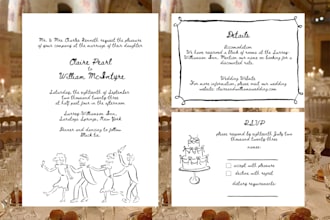 Mr. & Mrs. Charles Bennett request the pleasure
of your company at the marriage of their daughter
Claire Pearl
to
William McIntyre
Saturday, the eighteenth of September
two thousand twenty three
at half past four in the afternoon
Surrey-Williamson Inn,
Saratoga Springs, New York
Dinner and dancing to follow
Black tie
Details
Accomodation
We have reserved a block of rooms at the Surrey-
Williamson Inn. Mention our names on booking for a
discounted rate.
Wedding Website
For more information, please visit our wedding
website,
RSVP
please respond by eighteenth July two
thousand twenty three
names:
accept with pleasure
decline with regret
dietary requirements: